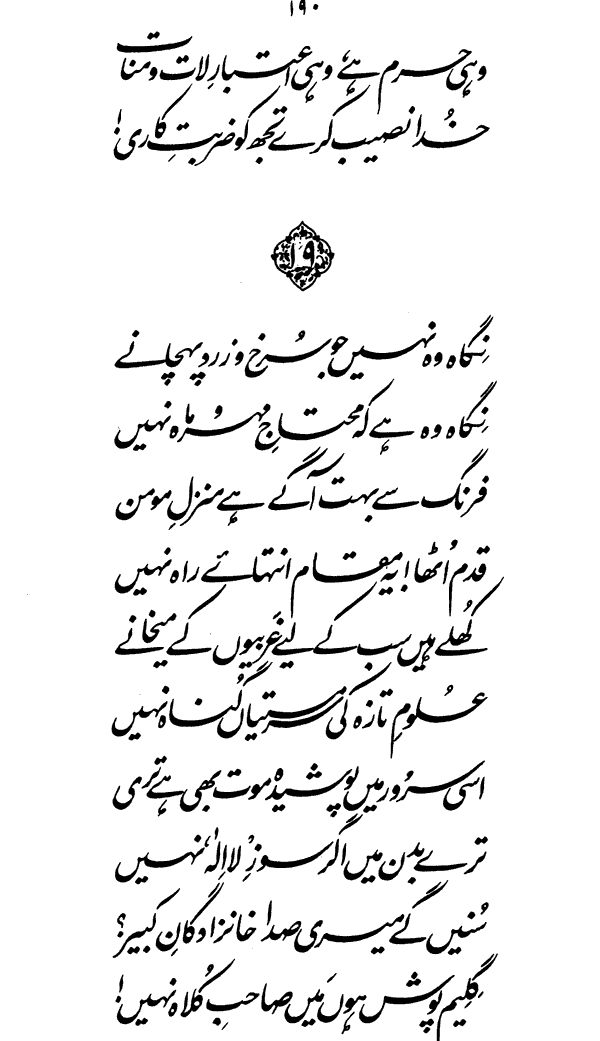 ۱۹۰
وہی حرم ہے، وہی اعتبارِ لات و منات
خدا نصیب کرے تجھ کو ضربتِ کاری!
۱۹
نِگاہ وہ نہیں جو سُرخ و زرد پہچانے
نِگاہ وہ ہے کہ محتاجِ مہر و ماہ نہیں
فرنگ سے بہت آگے ہے منزلِ مومن
قدم اُٹھا! یہ مقام انتہائے راہ نہیں
کُھلے ہیں سب کے لیے غَربیوں کے میخانے
عُلومِ تازہ کی سرمستیاں گُناہ نہیں
اسی سُرور میں پوشیدہ موت بھی ہے تری
ترے بدن میں اگر سوزِ 'لا اِلٰہ' نہیں
سُنیں گے میری صدا خانزادگانِ کبیر؟
گِلیم پوش ہوں مَیں صاحبِ کُلاہ نہیں!